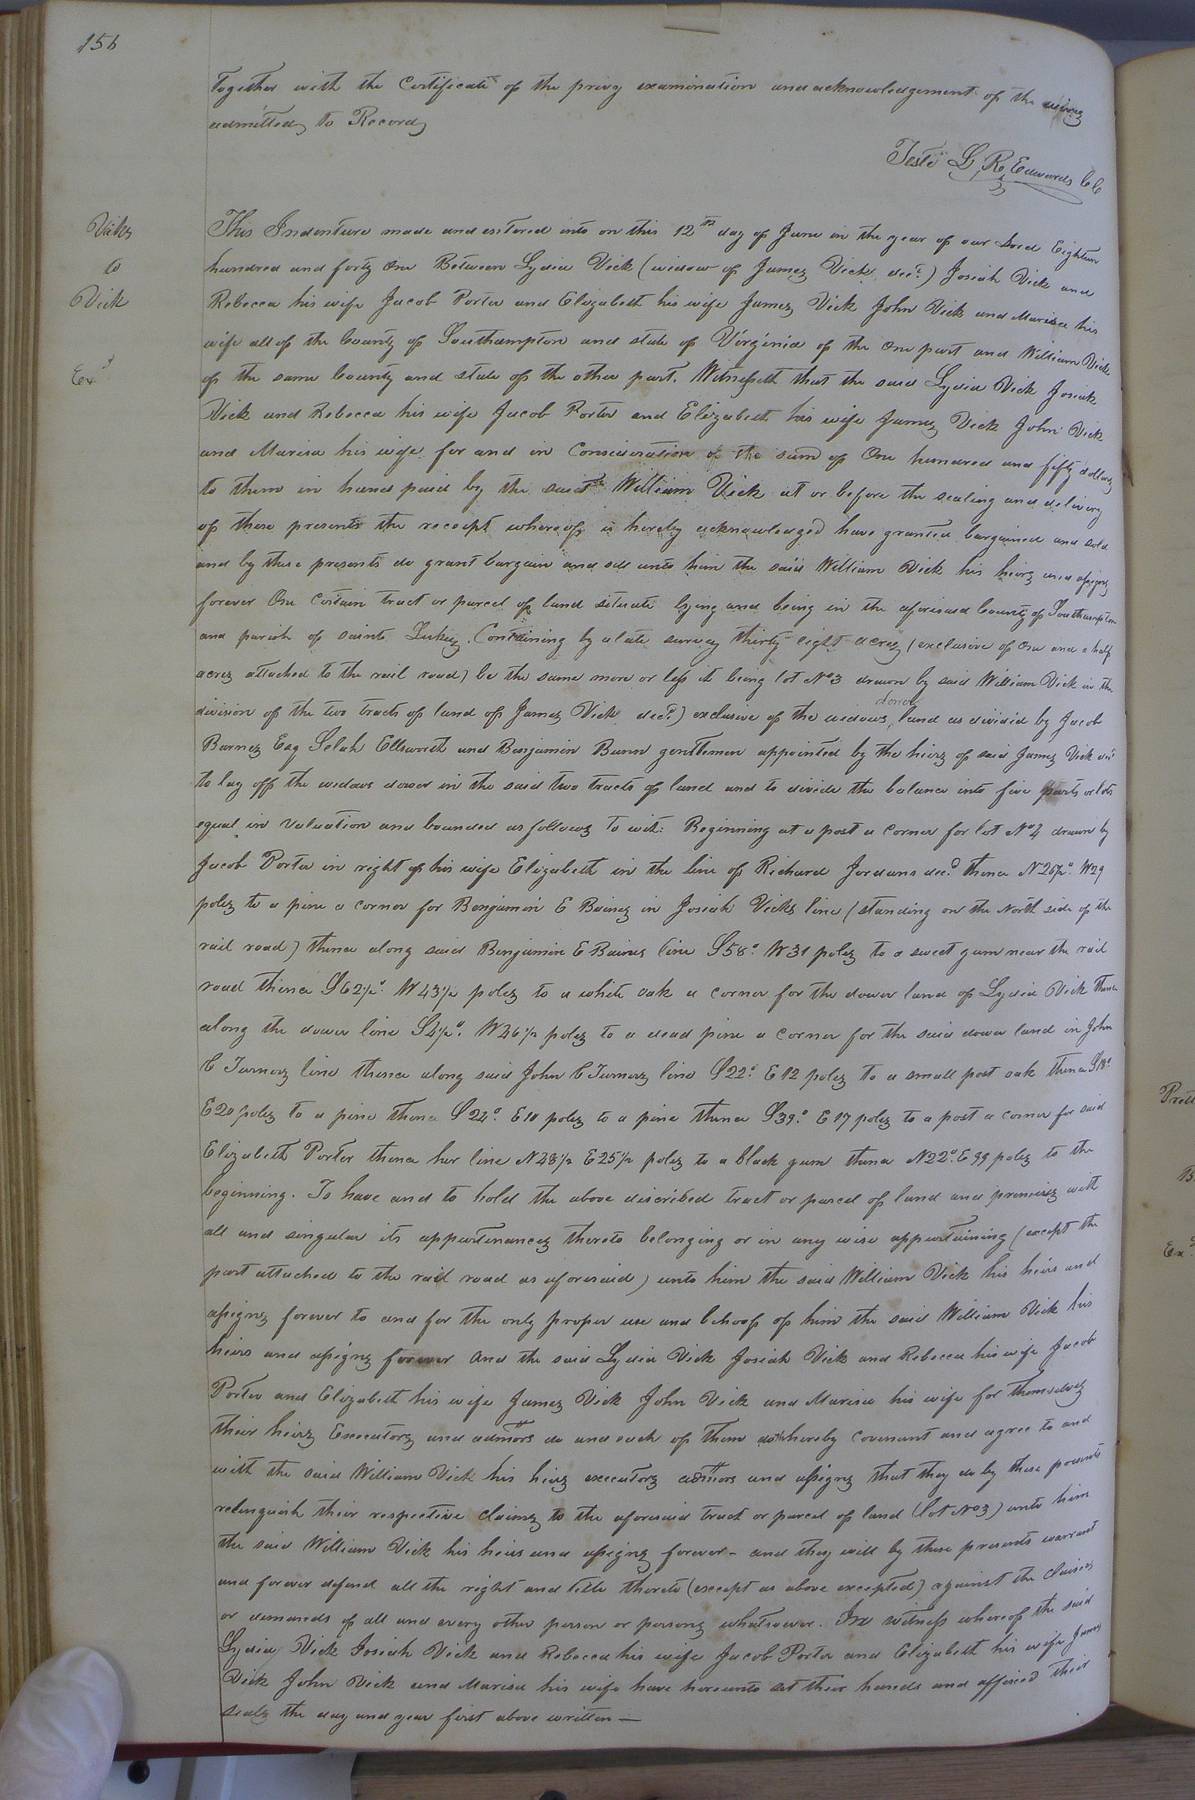 156
Together with the Certificate of the privy examination and acknowledgement of the
admitted to Record
Teste L. R. Edwards CC
Vicks
to
Vick
Exd
This Indenture made and entered into on this 12th day of June in the year of our Lord Eighteen
hundred and forty One Between Lydia Vick (widow of James Vick decd) Josiah Vick and
Rebecca his wife Jacob Porter and Elizabeth his wife James Vick John Vick and Marisa his
wife all of the County of Southampton and state of Virginia of the One part and William Vick
of the same County and state of the other part. Witnesseth that the said Lydia Vick Josiah
Vick and Rebecca his wife Jacob Porter and Elizabeth his wife James Vick John Vick
and Marisa his wife for and in Consideration of the sum of One hundred and fifty dollars
to them in hand paid by the said William Vick at or before the sealing and delivery
of these presents the receipt whereof is hereby acknowledged have granted bargained and sold
and by these presents do grant bargain and sell unto him the said William Vick his heirs and assigns
forever One Certain tract or parcel of land situate lying and being in the aforesaid County of Southampton
and parish of saints Lukes. Containing by a late survey thirty eight acres (exclusive of One and a half
acres attached to the rail road) be the same more or less it being lot No 3 drawn by said William Vick in the
division of the two tracts of land of James Vick decd) exclusive of the widows dower land as divided by Jacob
Barnes Esq Selah Ellsworth and Benjamin Bunn gentlemen appointed by the heirs of said James Vick decd
to lay off the widows dower in the said two tracts of land and to divide the balance into five parts or lots
equal in valuation and bounded as follows to wit: Beginning at a post a corner for lot No 4 drawn by
Jacob Porter in right of his wife Elizabeth in the line of Richard Jordans decd thence N 26½° W 29
poles to a pine a corner for Benjamin E Baines in Josiah Vicks line (standing on the North side of the
rail road) thence along said Benjamin E Baines line S 58° W 31 poles to a sweet gum near the rail
road thence S 62½° W 43½ poles to a white oak a corner for the dower land of Lydia Vick thence
along the dower line S 4½° W 46½ poles to a dead pine a corner for the said dower land in John
C Turners line thence along said John C Turners line S 22° E 12 poles to a small post oak thence S 18°
E 20 poles to a pine thence S 24° E 10 poles to a pine thence S 39° E 17 poles to a post a corner for said
Elizabeth Porter thence her line N 48½ E 25½ poles to a black gum thence N 22° E 99 poles to the
beginning. To have and to hold the above discribed tract or parcel of land and premises with
all and singular its appurtenances thereto belonging or in any wise appurtaining (except the
part attached to the rail road as aforesaid) unto him the said William Vick his heirs and
assigns forever to and for the only proper use and behoof of him the said William Vick his
heirs and assigns forever And the said Lydia Vick Josiah Vick and Rebecca his wife Jacob
Porter and Elizabeth his wife James Vick John Vick and Marisa his wife for themselves
their heirs Executors and admors do and each of them doth hereby covenant and agree to and
with the said William Vick his heirs executors admors and assigns that they do by these presents
relinquish their respective claims to the aforesaid tract or parcel of land (lot No 3) unto him
the said William Vick his heirs and assigns forever - and they will by these presents warrant
and forever defend all the right and title thereto (except as above excepted) against the claims
or demands of all and every other person or persons whatsoever. In witness whereof the said
Lydia Vick Josiah Vick and Rebecca his wife Jacob Porter and Elizabeth his wife James
Vick John Vick and Marisa his wife have hereunto set their hands and affixed their
seals the day and year first above written —